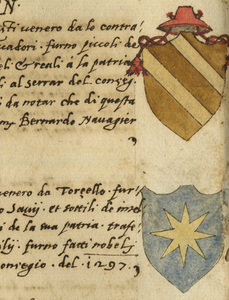 N.
ti venero da le contra/
uadori. furno piccoli de
li & reali à la patria
li. al serrar del conseg/
da notar che di questa
Bernardo Nauagier
venero da Torcello. furº
Sauij, et sottili de
di de la sua patria.
furno fatti nobelj
conregio. del. 1297.